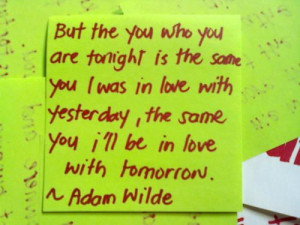 But the you who you
are tonight is the same
you I was in love with
yesterday, the same
you i'll be in love
with tomorrow.
~ Adam Wilde